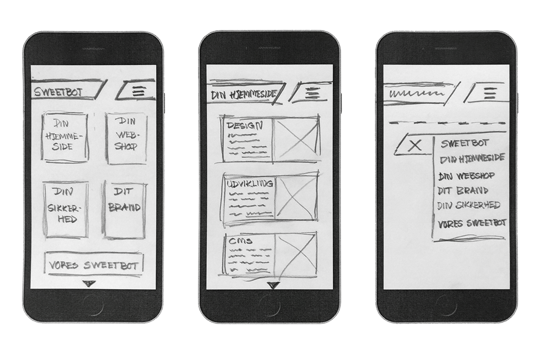 SWEETBOT
DIN
HJEMME-
SIDE
DIN
WEB-
SHOP
DIN
SIKKER-
HED
DIT
BRAND
VORES SWEETBOT
DIN HJEMMESIDE
DESIGN
UDVIKLING
CMS
X
SWEETBOT
DIN HJEMMESIDE
DIN WEBSHOP
DIT BRAND
DIN SIKKERHED
VORES SWEETBOT